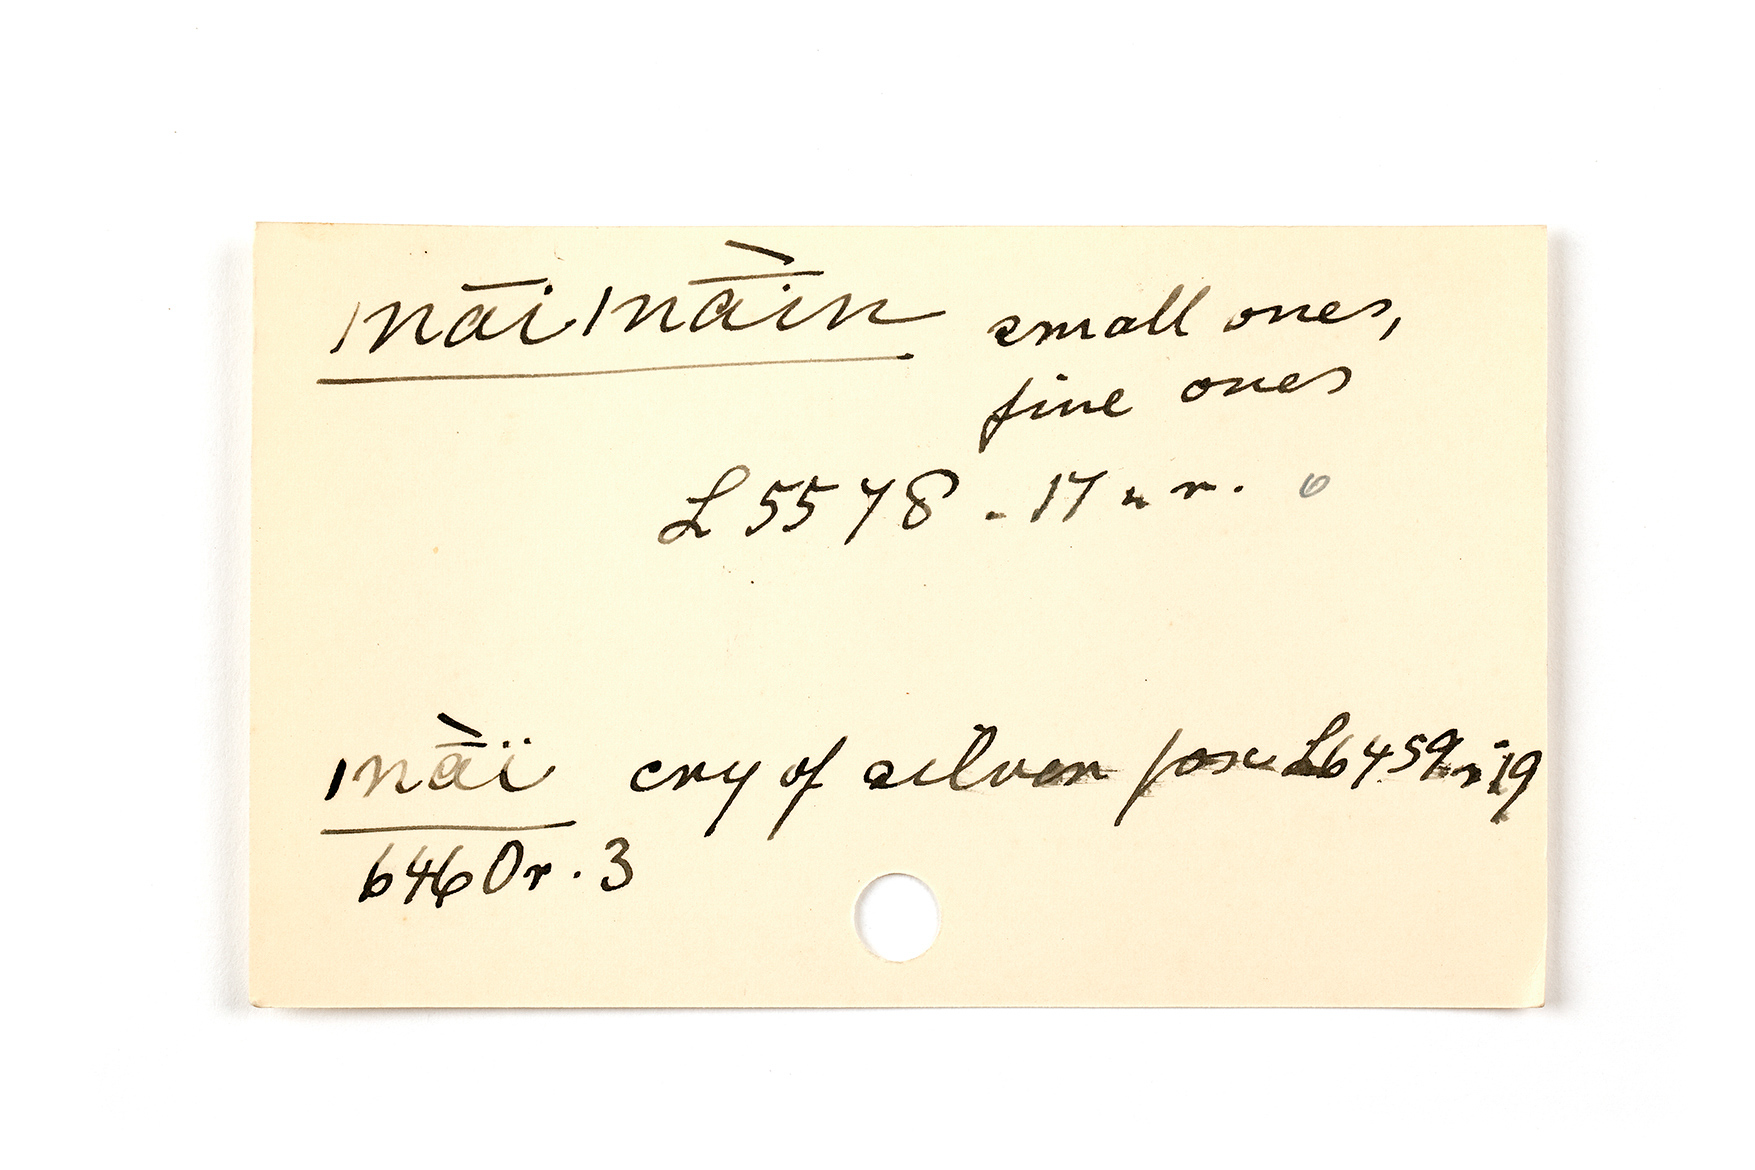 |nāi|nā̀in small ones,
fine ones
L 5578 - 17 u r.
|nā̀ï cry of silver fox L6459r.19
6460r. 3